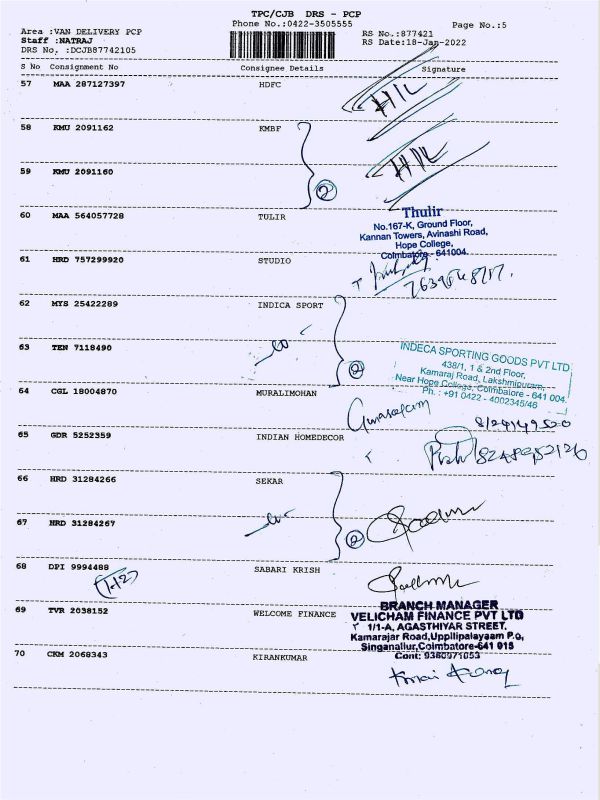 TPC/CJB DRS - PCP
Phone No.:0422-3505555
Page No.:5
Area :VAN DELIVERY PCP
Staff :NATRAJ
DRS No. :DCJB87742105
RS No.:877421
RS Date:18-Jan-2022
S No Consignment No Consignee Details Signature
57 MAA 287127397 HDFC
58 KMU 2091162 KMBF
59 KMU 2091160
2
60 MAA 564057728 TULIR
Thulir
No.167-K, Ground Floor,
Kannan Towers, Avinashi Road,
Hope College,
Coimbatore - 641004.
61 HRD 757299920 STUDIO
62 MYS 25422289 INDICA SPORT
63 TEN 7118490
2
INDECA SPORTING GOODS PVT LTD
438/1, 1 & 2nd Floor,
Kamaraj Road, Lakshmipuram,
Near Hope College, Coimbatore - 641 004.
Ph. : +91 0422 - 4002345/46
64 CGL 18004870 MURALIMOHAN
65 GDR 5252359 INDIAN HOMEDECOR
66 HRD 31284266 SEKAR
67 HRD 31284267
2
68 DPI 9994488 SABARI KRISH
69 TVR 2038152 WELCOME FINANCE
BRANCH MANAGER
VELICHAM FINANCE PVT LTD
1/1-A, AGASTHIYAR STREET,
Kamarajar Road,Uppilipalayaam P.o,
Singanallur,Coimbatore-641 015
Cont: 9360971053
70 CKM 2068343 KIRANKUMAR